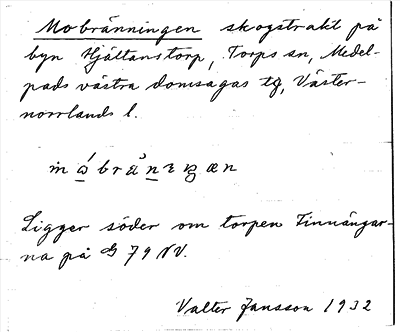 Mobränningen skogstrakt på
byn Hjältanstorp, Torps sn, Medel-
pads västra domsagas tg, Väster-
norrlands l.
Ligger söder om torpen Finnängar-
na på G 79 NV.
Valter Jansson 1932